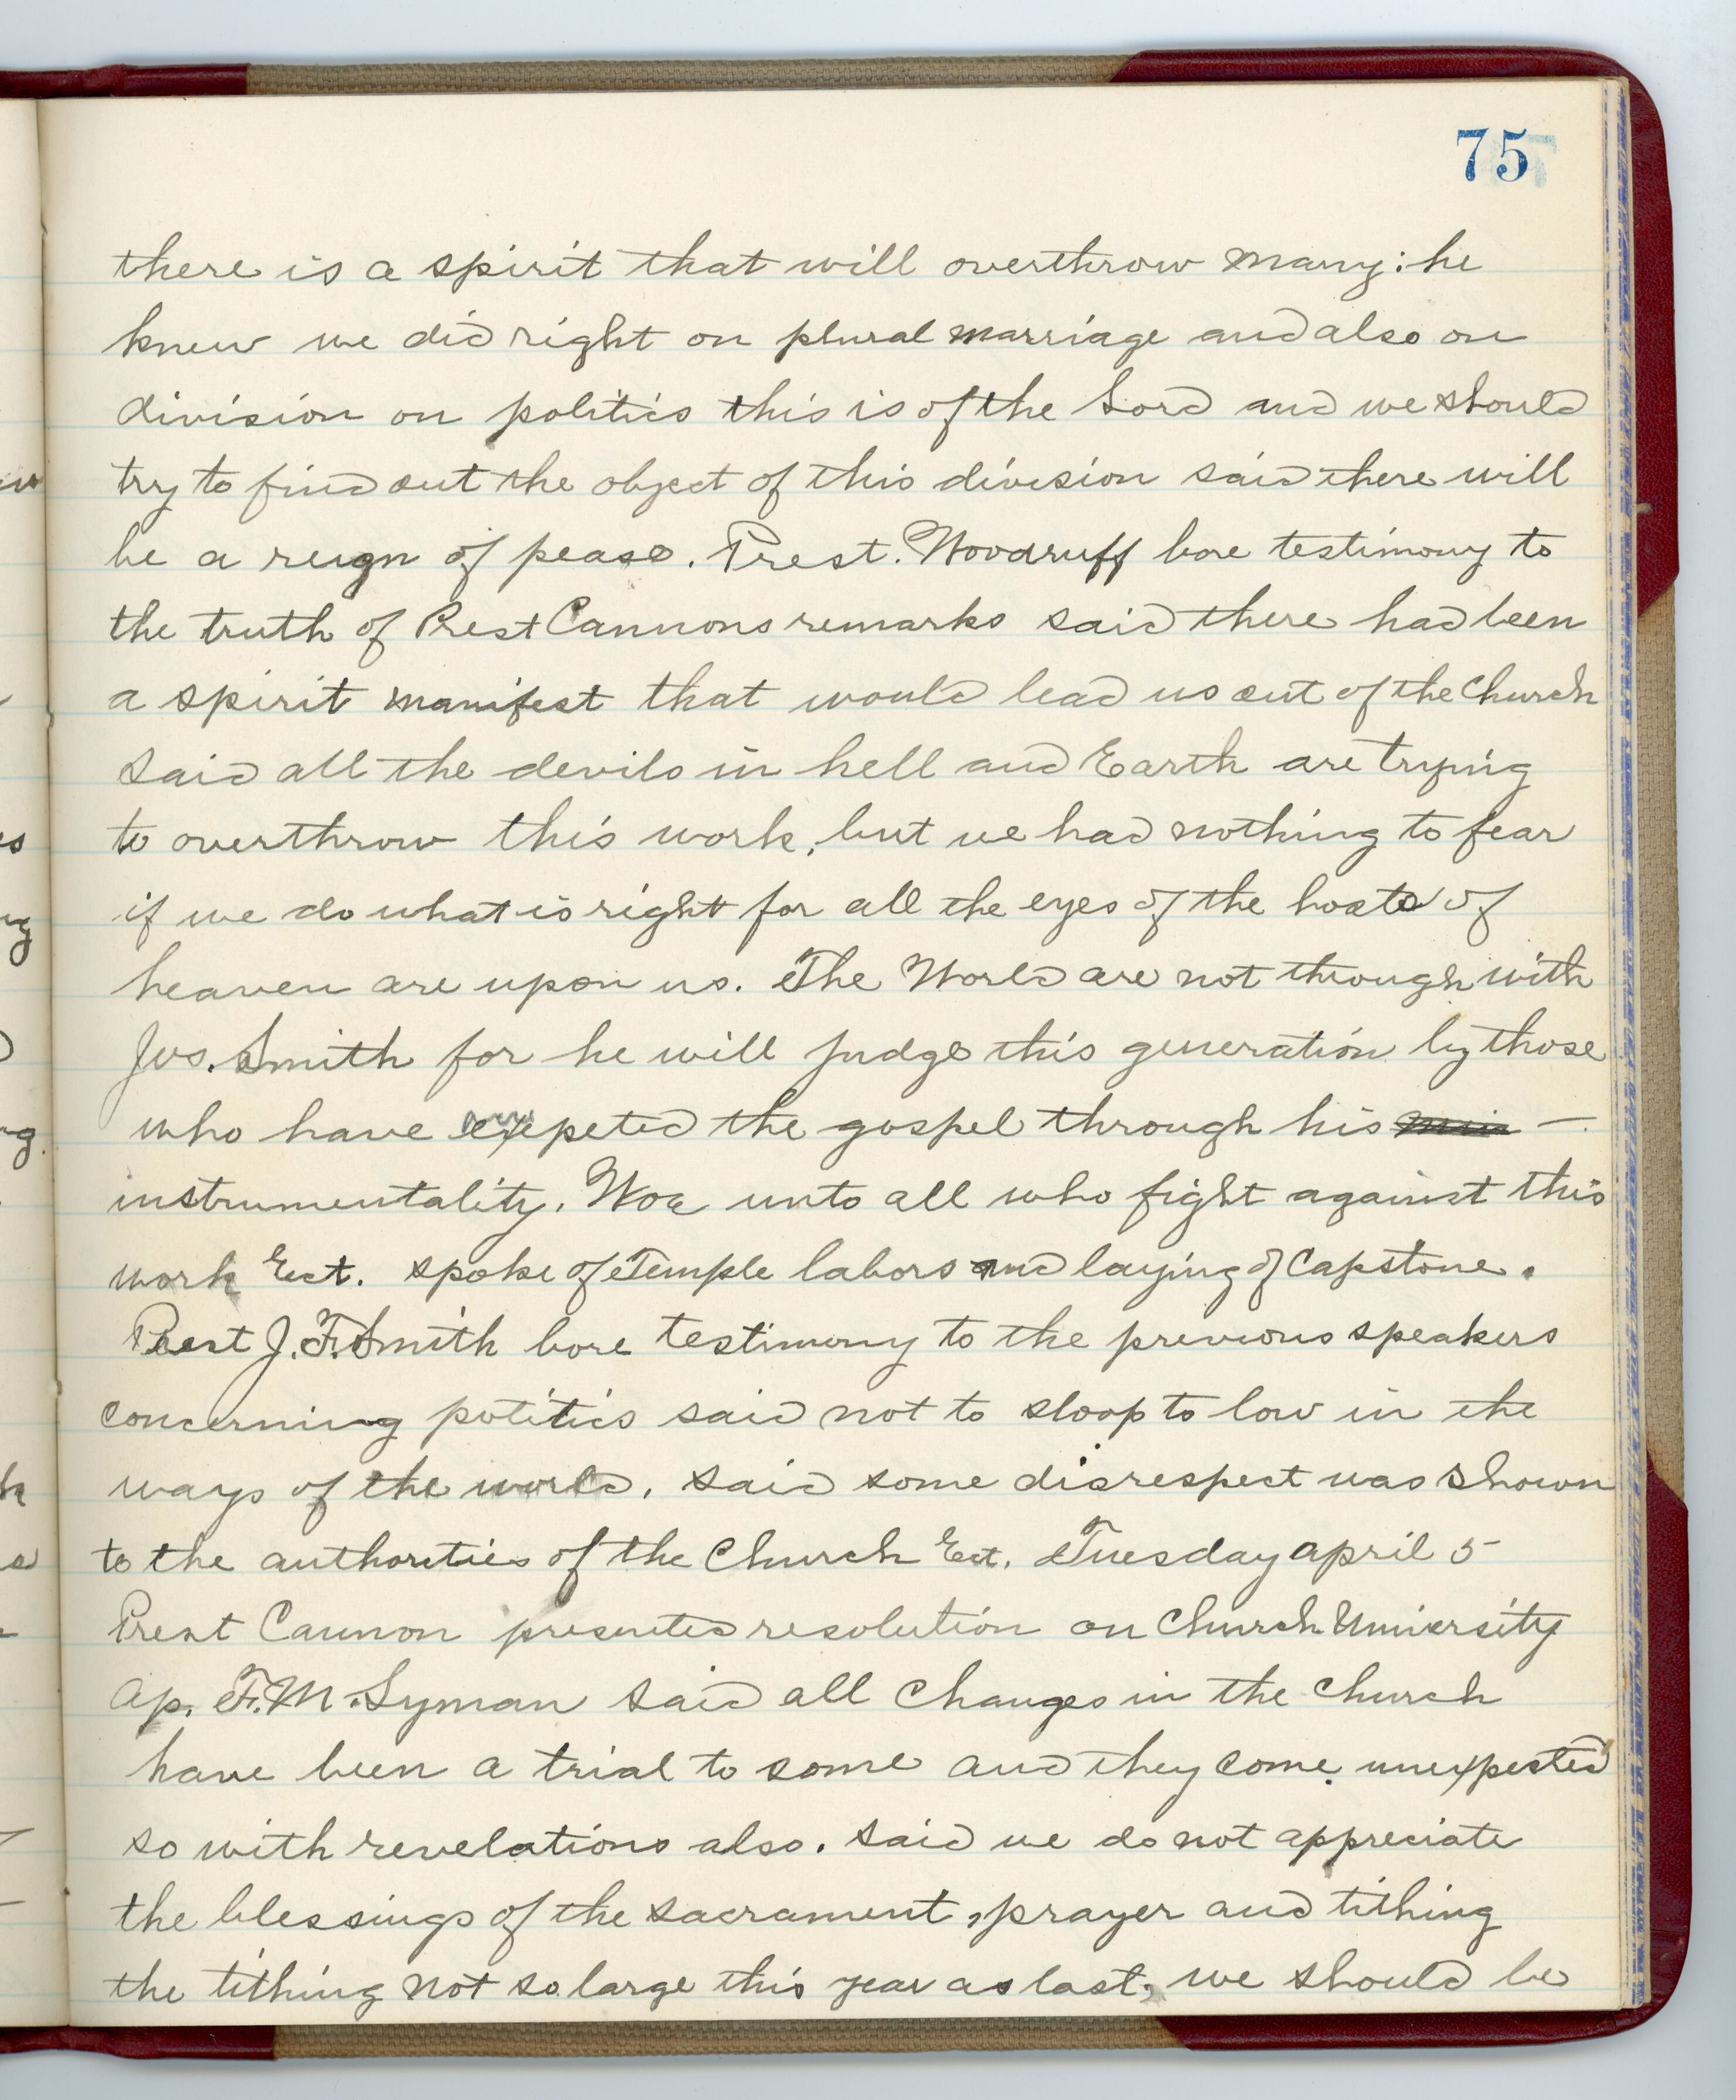 75
there is a spirit that will overthrow many: he
knew we did right on plural marriage and also on
division on politics this is of the Lord and we should
try to find out the object of this division said there will
be a reign of pease. Prest. Woodruff bore testimony to
the truth of Prest Cannons remarks said there had been
a spirit manifest that would lead us out of the Church
said all the devils in hell and Earth are trying
to overthrow this work, but we had nothing to fear
if we do what is right for all the eyes of the hosts of
heaven are upon us. The World are not through with
Jos. Smith for he will judge this generation by those
who have the gospel through his
instrumentality. Woe unto all who fight against this
work Ect. spoke of Temple labors and laying of Capstone.
Prest J. F. Smith bore testimony to the previous speakers
concerning politics said not to stoop to low in the
ways of the world. said some disrespect was shown
to the authorities of the Church Ect. Tuesday april 5
Prest Cannon presented resolution on Church University
Ap. F. M. Lyman said all changes in the church
have been a trial to some and they come unexpected
so with revelations also. said we do not appreciate
the blessings of the sacrament, prayer and tithing
the tithing not so large this year as last, we should be